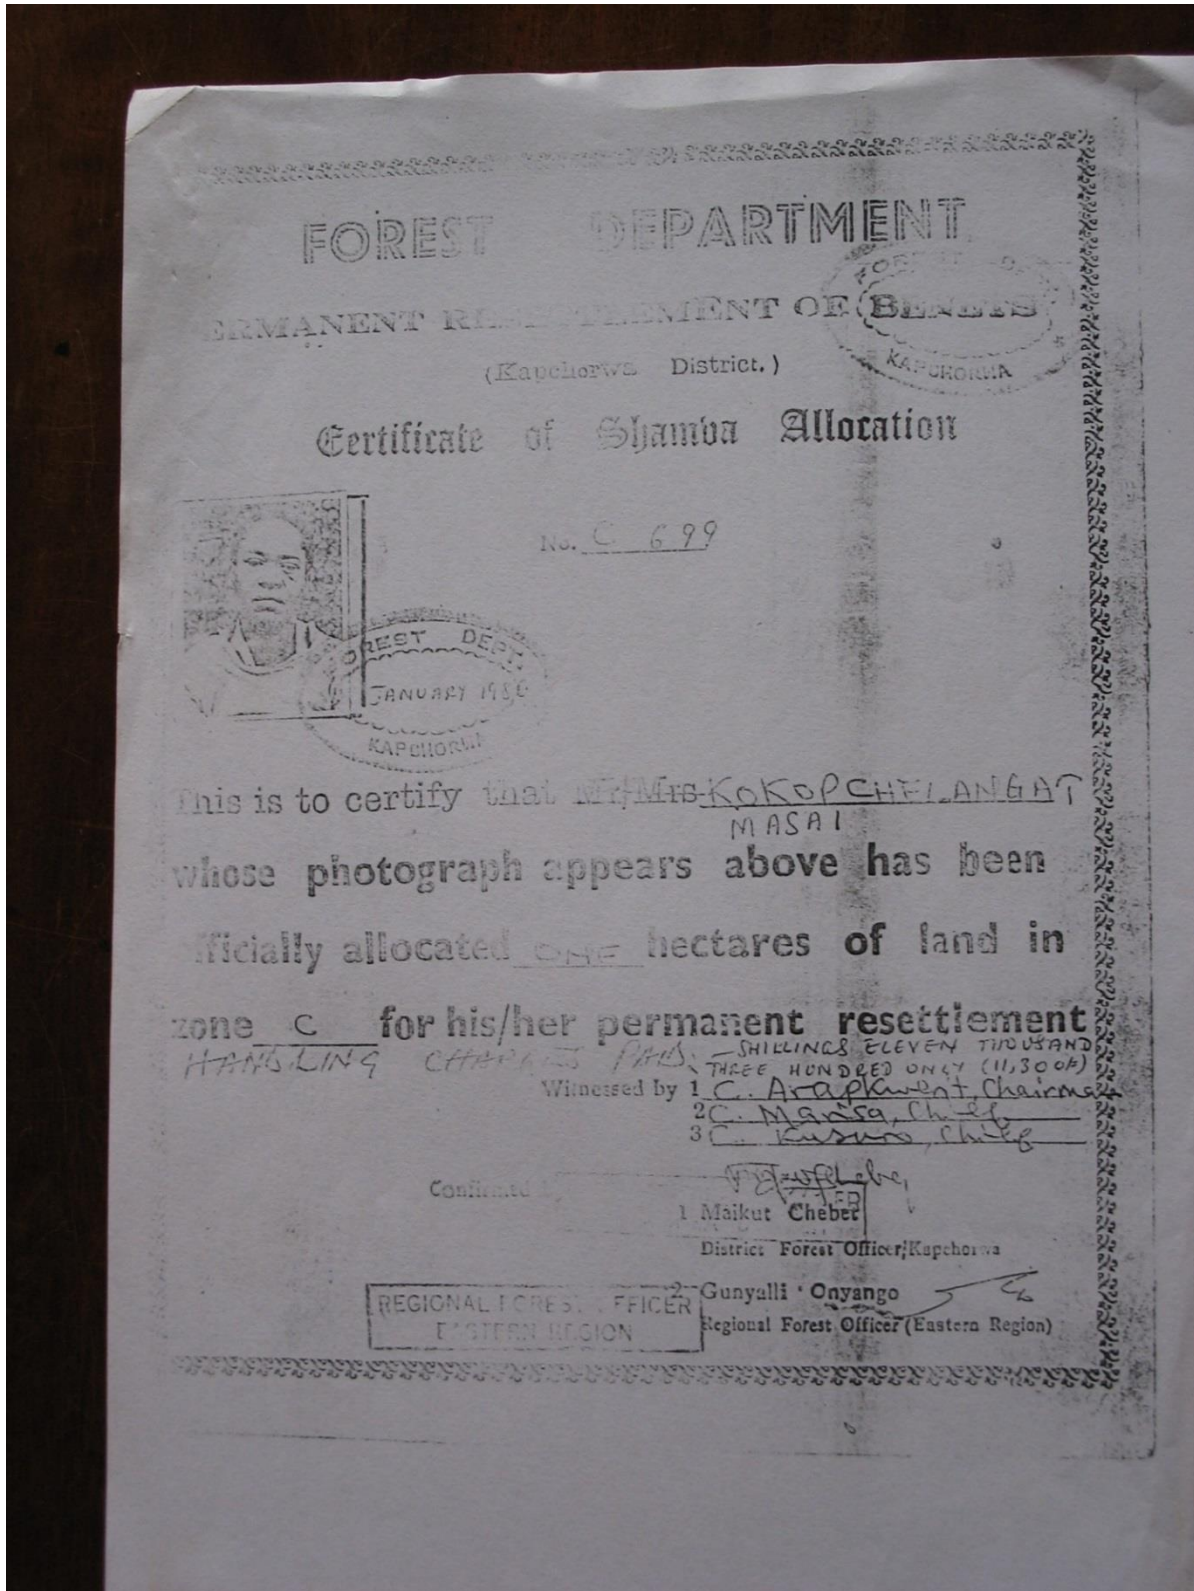 FOREST DEPARTMENT
ERMANENT RESETTLEMENT OF BENETS
FOREST
KAPCHORWA
(Kapchorwa District.)
Certificate of Shamba Allocation
No. C 699
FOREST DEPT.
JANUARY 198
KAPCHORWA
This is to certify that Mr/Mrs KOKOP CHELANGAT
MASAI
whose photograph appears above has been
officially allocated ONE hectares of land in
zone C for his/her permanent resettlement
HANDLING CHARGES PAID: – SHILLINGS ELEVEN THOUSAND
THREE HUNDRED ONLY (11,300/=)
Witnessed by 1 C. Arapkwent, Chairma
2 C. Marisa, Chief
3 C. Kusuro, Chief
Confirmed
1 Maikut Chebet
District Forest Officer, Kapchorwa
2 Gunyalli Onyango
Regional Forest Officer (Eastern Region)
REGIONAL FOREST OFFICER
EASTERN REGION